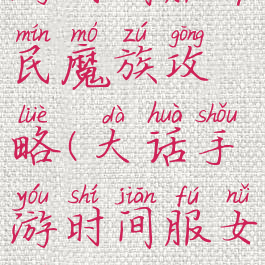 mín mó zú gōng
民魔族攻
lüè dà huà shǒu
略(大话手
yóu shí jiān fú nǚ
游时间服女